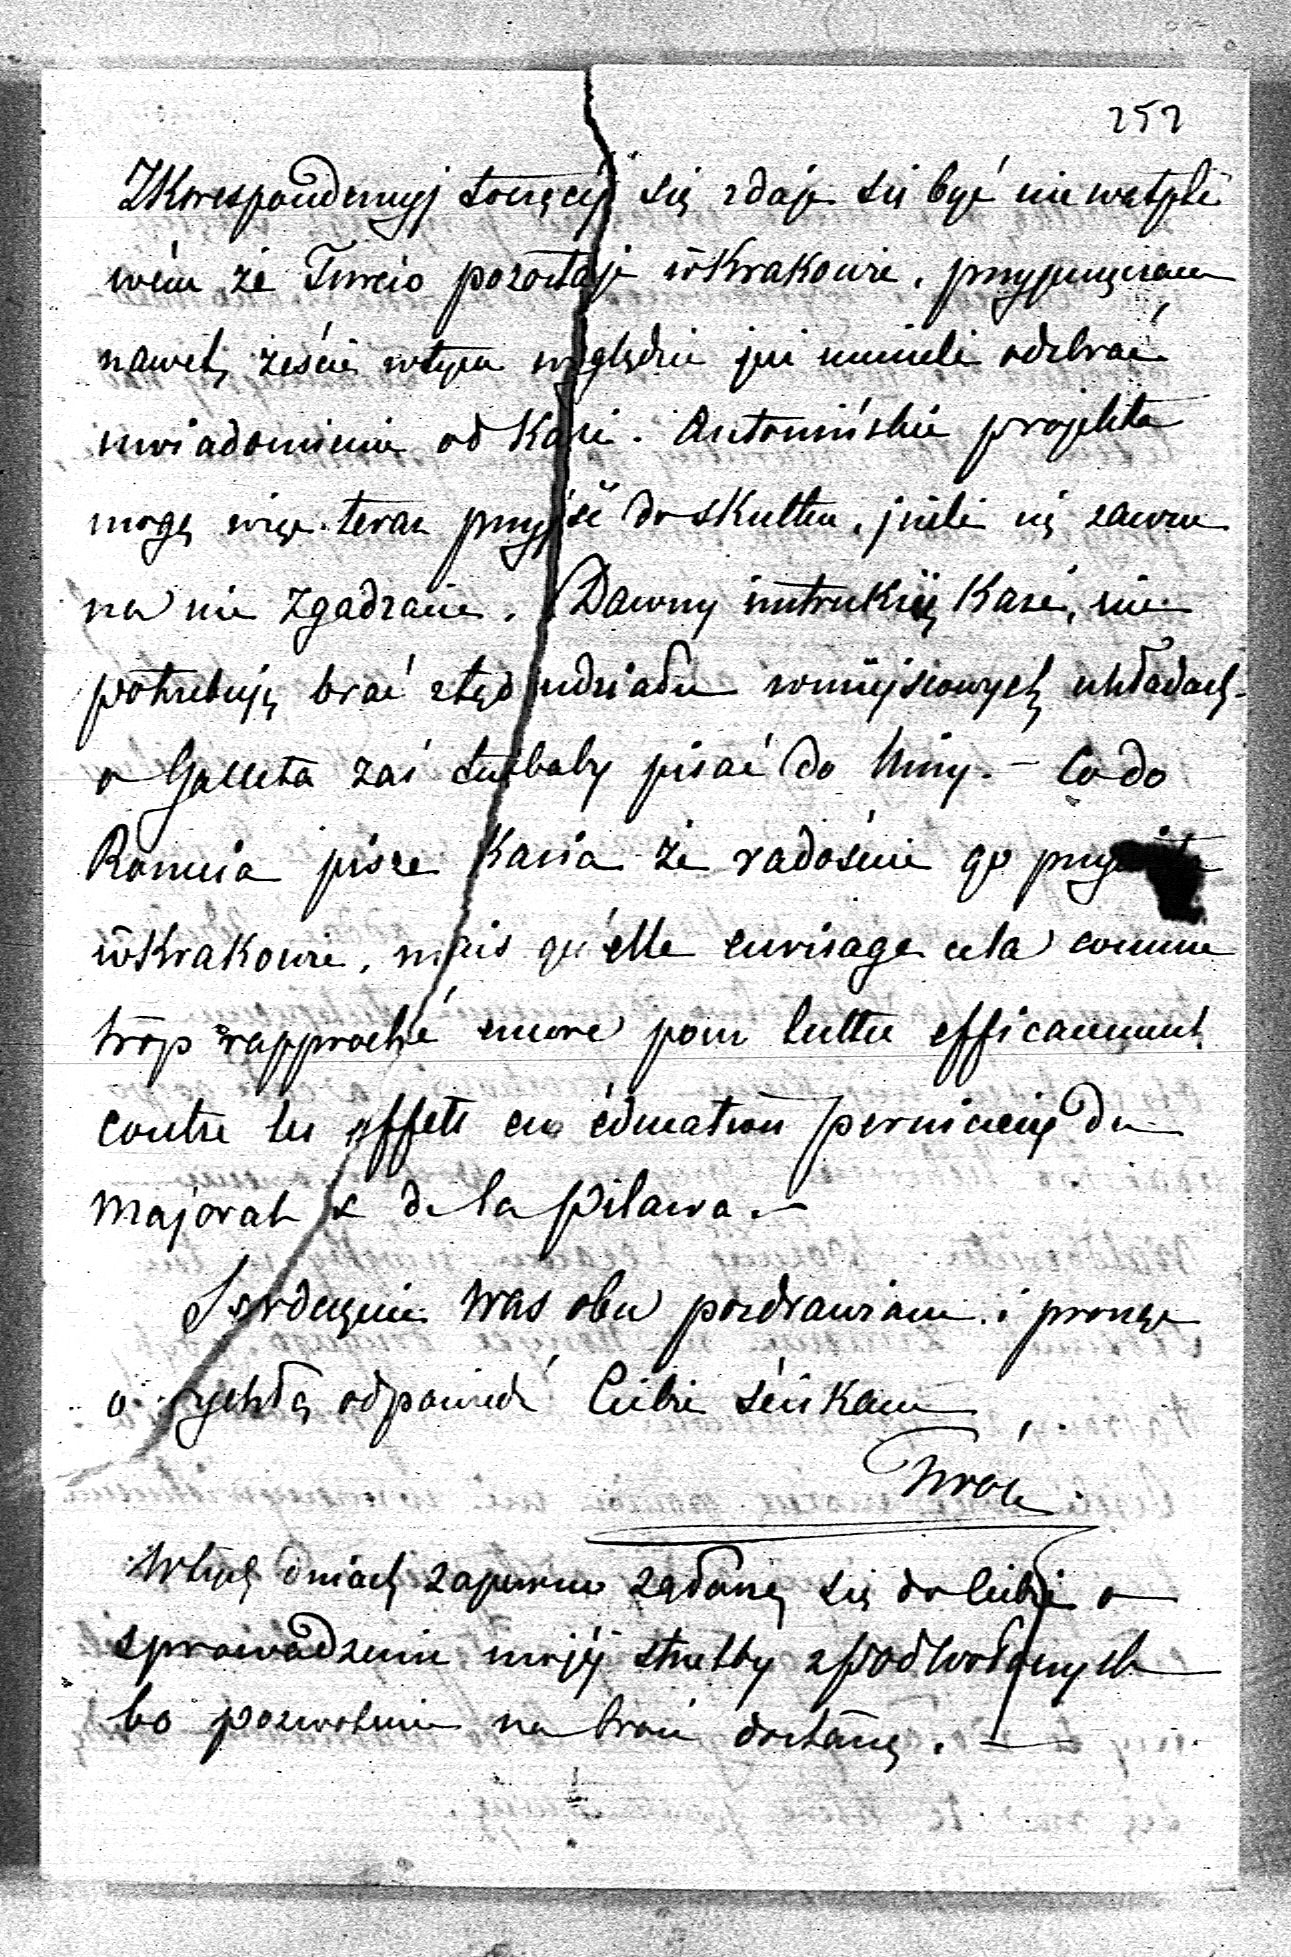 252
ZKorespondencyj toczącej się zdaje się być niewątpli
wém że Turcio pozostaje w Krakowie, przypuszczam
nawet, żeście w tym względzie już musieli odebrać
uwiadomienie od Kazi. Antonińskie projekta
mogą więc teraz przyjść do skutku, jeżeli się zawsze
na nie zgadzacie. Dawny instrukcię Kazi, nie
potrzebuję brać ztąd udziału w miejscowych układach
o Galleta zaś trzebaby pisać do Niny. – Co do
Romcia pisze Kazia że radośnie go
w Krakowie, mais qu'elle envisage cela comme
trop rapproché encore pour lutter efficacement
contre les effets en éducation pernicieux du
Majorat & de la Pilawa. –
Serdecznie Was obu pozdrawiam i proszę
o rychłą odpowiedź Ciebie ściskam

W tych dniach zapewne zgłoszę się do Ciebie o
sprowadzenie mojéj strzelby z Podwołoczysk
bo pozwolenie na broń dostanę. –